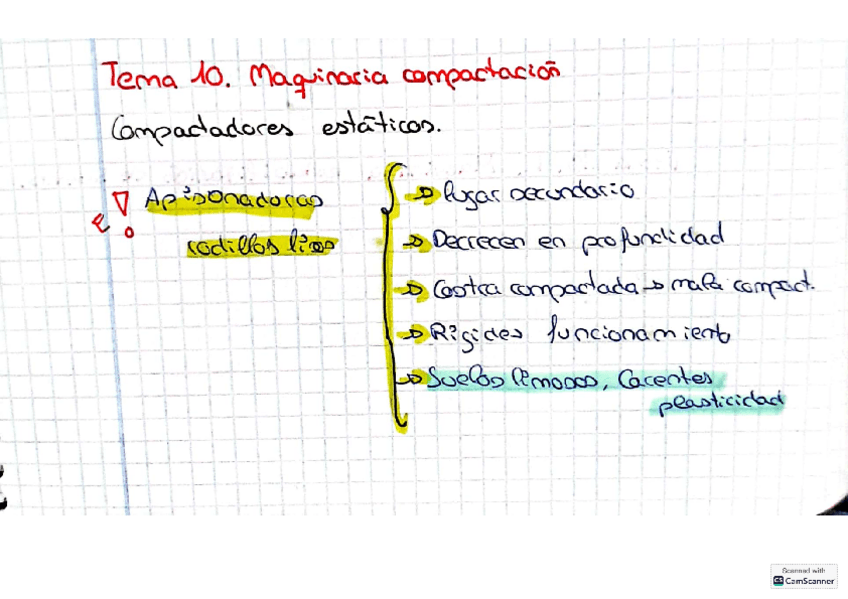 Tema 10. Maquinaria compactación
Compactadores estáticos.
Apisonadoras
rodillos lisos
→ lugar secundario
→ Decrecen en profundidad
→ Costra compactada → mala compact.
→ Rígides funcionamient
→ Suelos limosos, Carentes
plasticidad
Scanned with
CS CamScanner